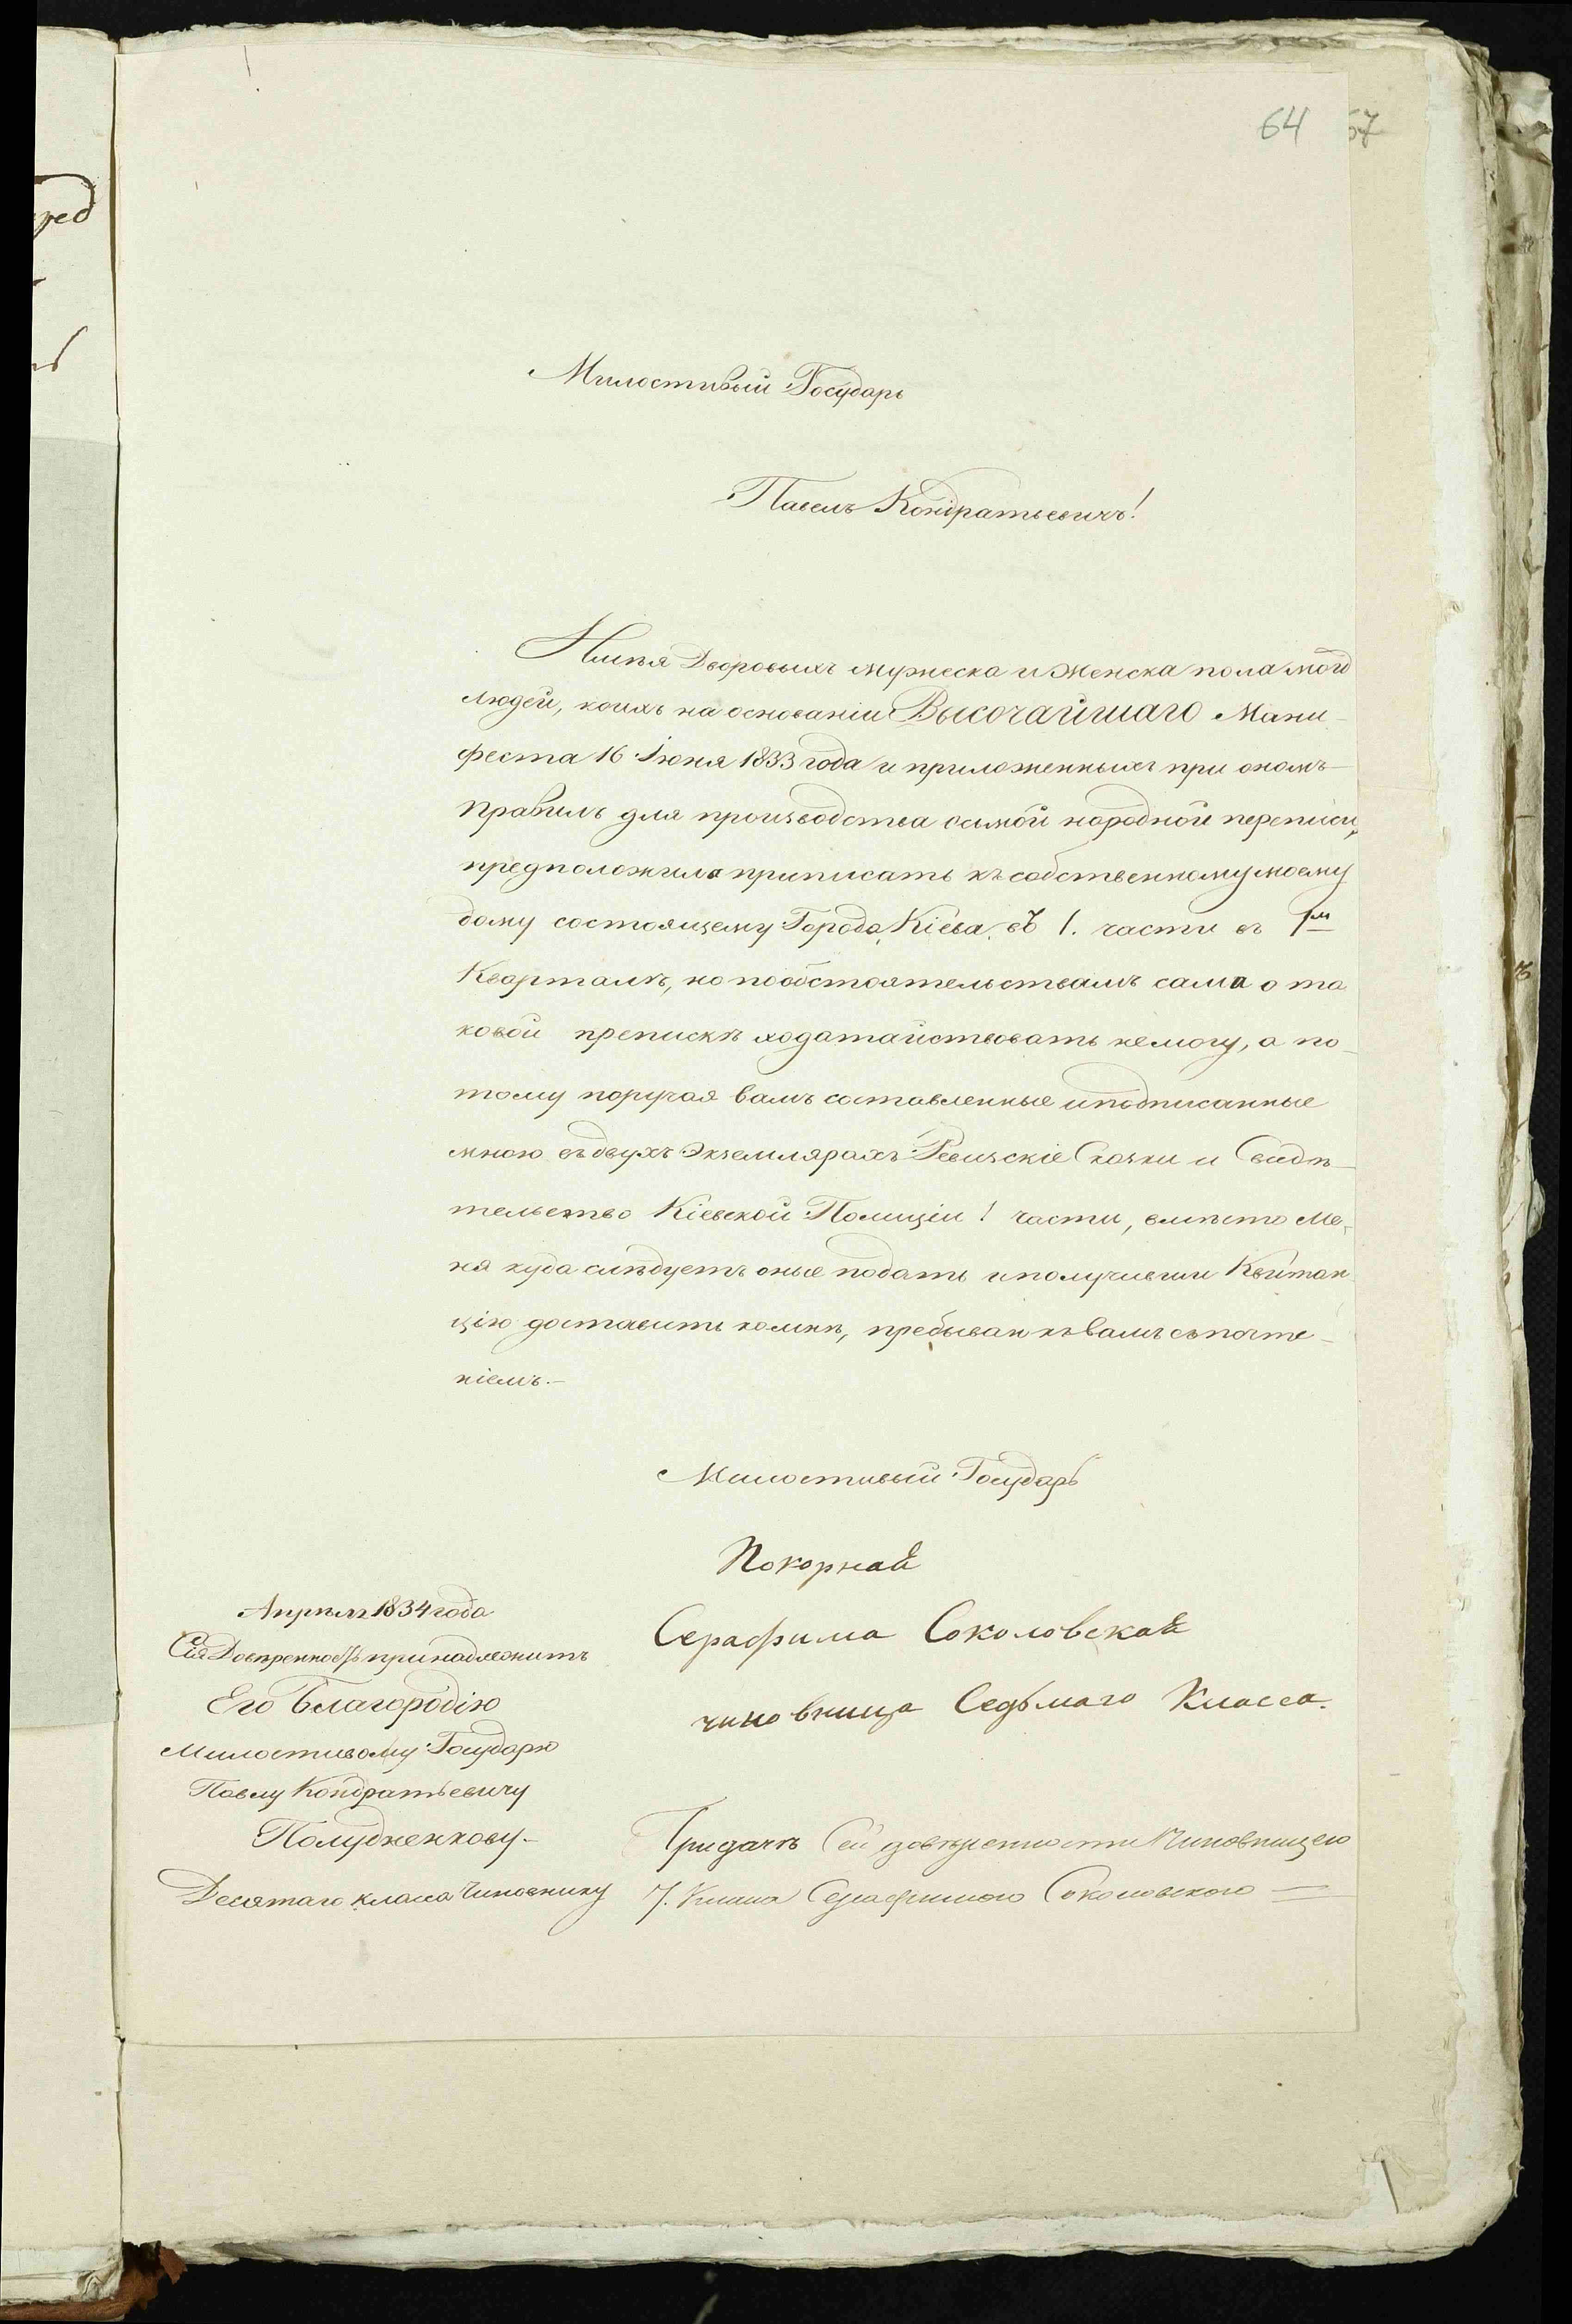 64 57
Милостивый Государь
Павелъ Кондратьевичъ!
Имѣя Дворовыхъ мужеска и женска пола моихъ
людей, коихъ на основаніи Высочайшаго Мани-
феста 16 Іюня 1833 года и приложенныхъ при ономъ
Правилъ для производства осьмой народной переписи,
предположила приписать къ собственному моему
дому состоящему Города Кіева въ 1. части въ 1м
Кварталѣ, но пообстоятельствамъ сама о та
ковой препискѣ ходатайствовать немогу, а по-
тому поручая вамъ составленные иподписанные
мною въ двухъ Экземлярахъ Ревизскіе Сказки и Свидѣ-
тельство Кіевской Полиціи 1 части, вмѣсто ме-
ня куда слѣдуетъ оные подать иполучивши Квитан
цію доставить комнѣ, пребываю къ Вамъ съ почте-
ніемъ.-
Милостивый Государь
Покорная
Серафима Соколовская
чиновница Седьмаго Класса.
Апрѣля 1834 года
Сія Довѣренность принадлежитъ
Его Благородію
Милостивому Государю
Павлу Кондратьевичу
Полудненкову-
Десятаго класса Чиновнику
Сей довѣренности Чиновницею
7. Класса Серафимою Соколовского